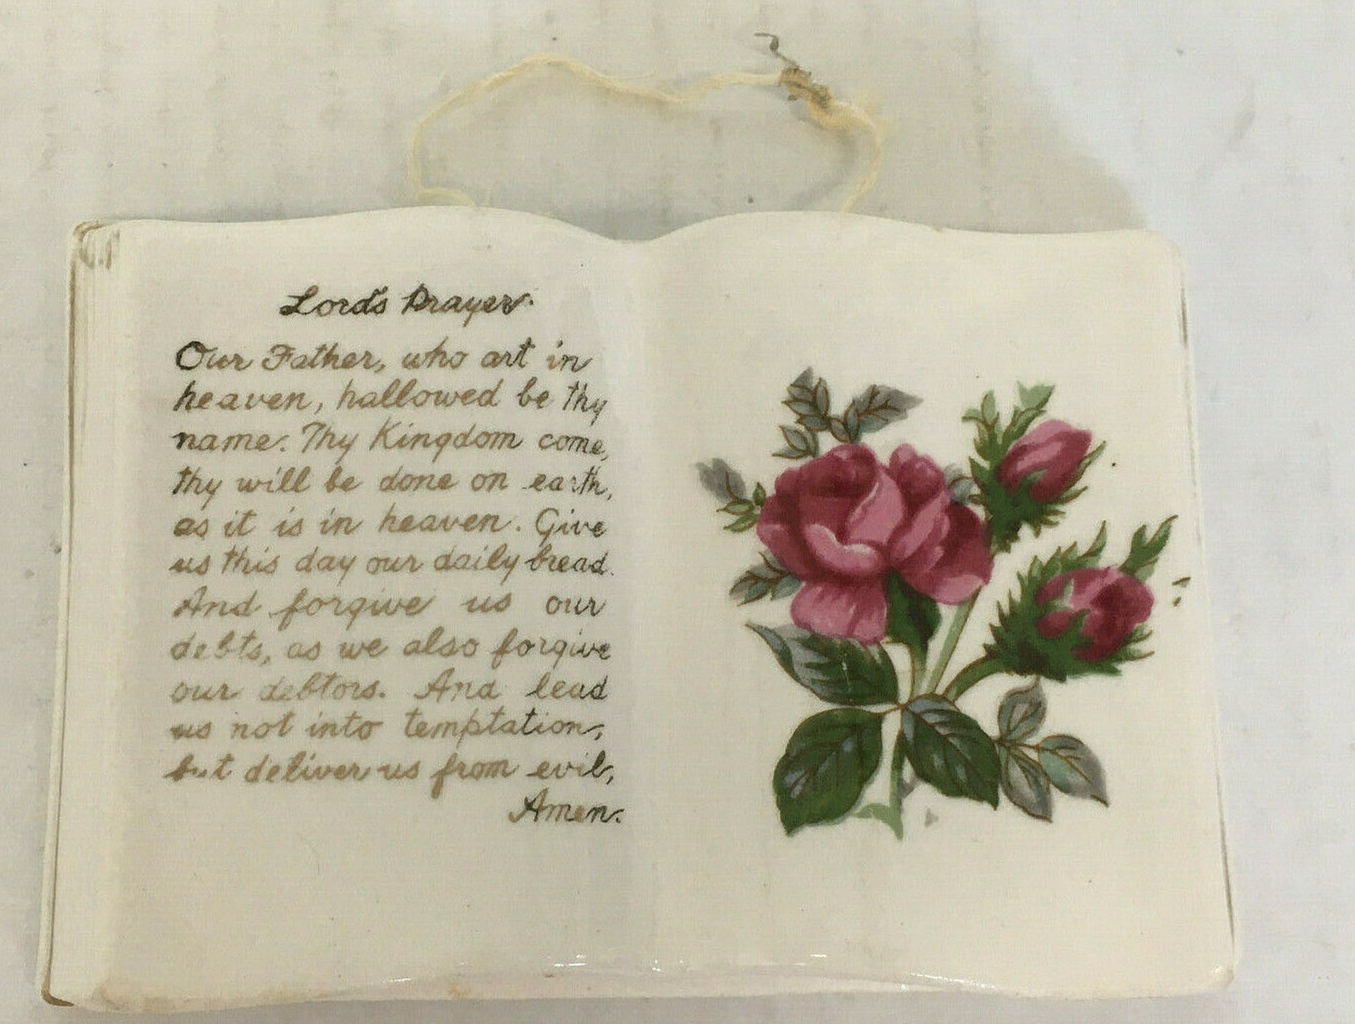 Lord's Prayer.
Our Father, who art in
heaven, hallowed be thy
name. Thy Kingdom come,
thy will be done on earth,
as it is in heaven. Give
us this day our daily bread.
And forgive us our
debts, as we also forgive
our debtors. And lead
us not into temptation,
but deliver us from evil,
Amen.